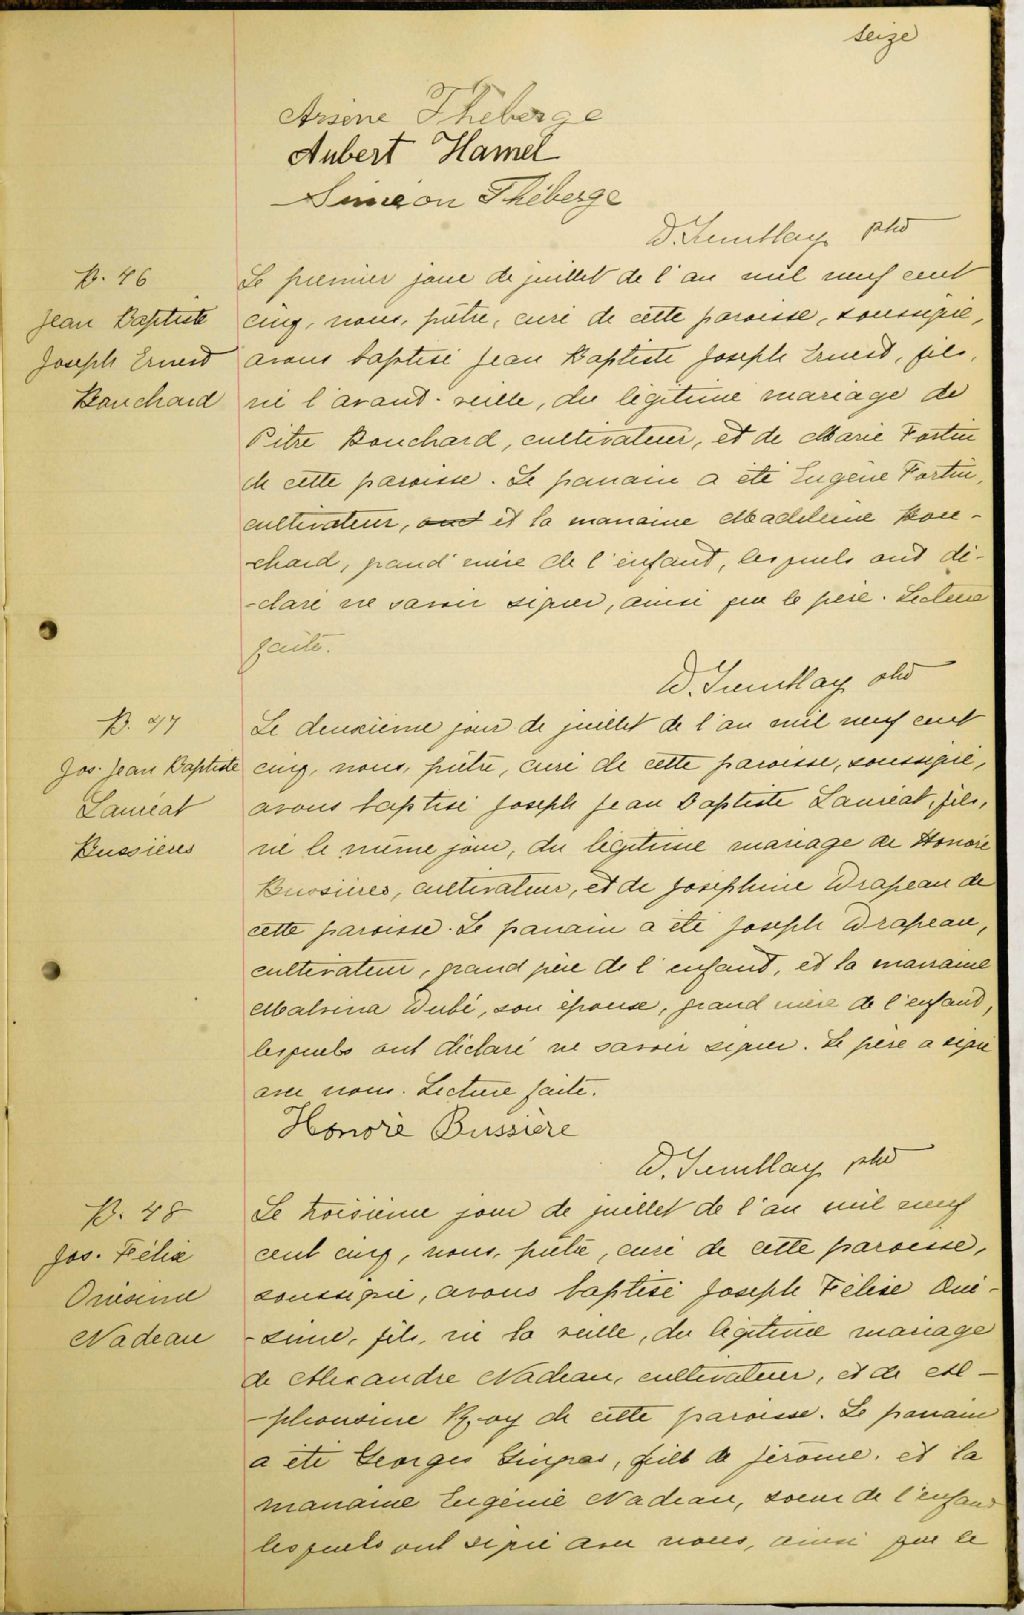 seize
Arsène Théberge
Aubert Hamel
Siméon Théberge
D. Tremblay ptre
B. 46
Jean Baptiste
Joseph Ernest
Bouchard
Le premier jour de juillet de l'an mil neuf cent
cinq, nous, prêtre, curé de cette paroisse, soussigné,
avons baptisé Jean Baptiste Joseph Ernest, fils,
né l'avant-veille, du légitime mariage de
Pitre Bouchard, cultivateur, et de Marie Fortin
de cette paroisse. Le parrain a été Eugène Fortin,
cultivateur, ont et la marraine Madeleine Bou-
-chard, grand'mère de l'enfant, lesquels ont dé-
-claré ne savoir signer, ainsi que le père. Lecture
faite.
D. Tremblay ptre
B. 47
Jos. Jean Baptiste
Lauréat
Bussières
Le deuxième jour de juillet de l'an mil neuf cent
cinq, nous, prêtre, curé de cette paroisse, soussigné,
avons baptisé Joseph Jean Baptiste Lauréat, fils,
né le même jour, du légitime mariage de Honoré
Bussières, cultivateur, et de Joséphine Drapeau de
cette paroisse. Le parrain a été Joseph Drapeau,
cultivateur, grand père de l'enfant, et la marraine
Malvina Dubé, son épouse, grand mère de l'enfant,
lesquels ont déclaré ne savoir signer. Le père a signé
avec nous. Lecture faite.
Honoré Bussière
D. Tremblay ptre
B. 48
Jos. Félix
Onésime
Nadeau
Le troisième jour de juillet de l'an mil neuf
cent cinq, nous, prêtre, curé de cette paroisse,
soussigné, avons baptisé Joseph Félix Oné-
-sime, fils, né la veille, du légitime mariage
de Alexandre Nadeau, cultivateur, et de Al-
-phonsine Roy de cette paroisse. Le parrain
a été Georges Gingras, fils de Jérôme, et la
marraine Eugénie Nadeau, soeur de l'enfant
lesquels ont signé avec nous, ainsi que le